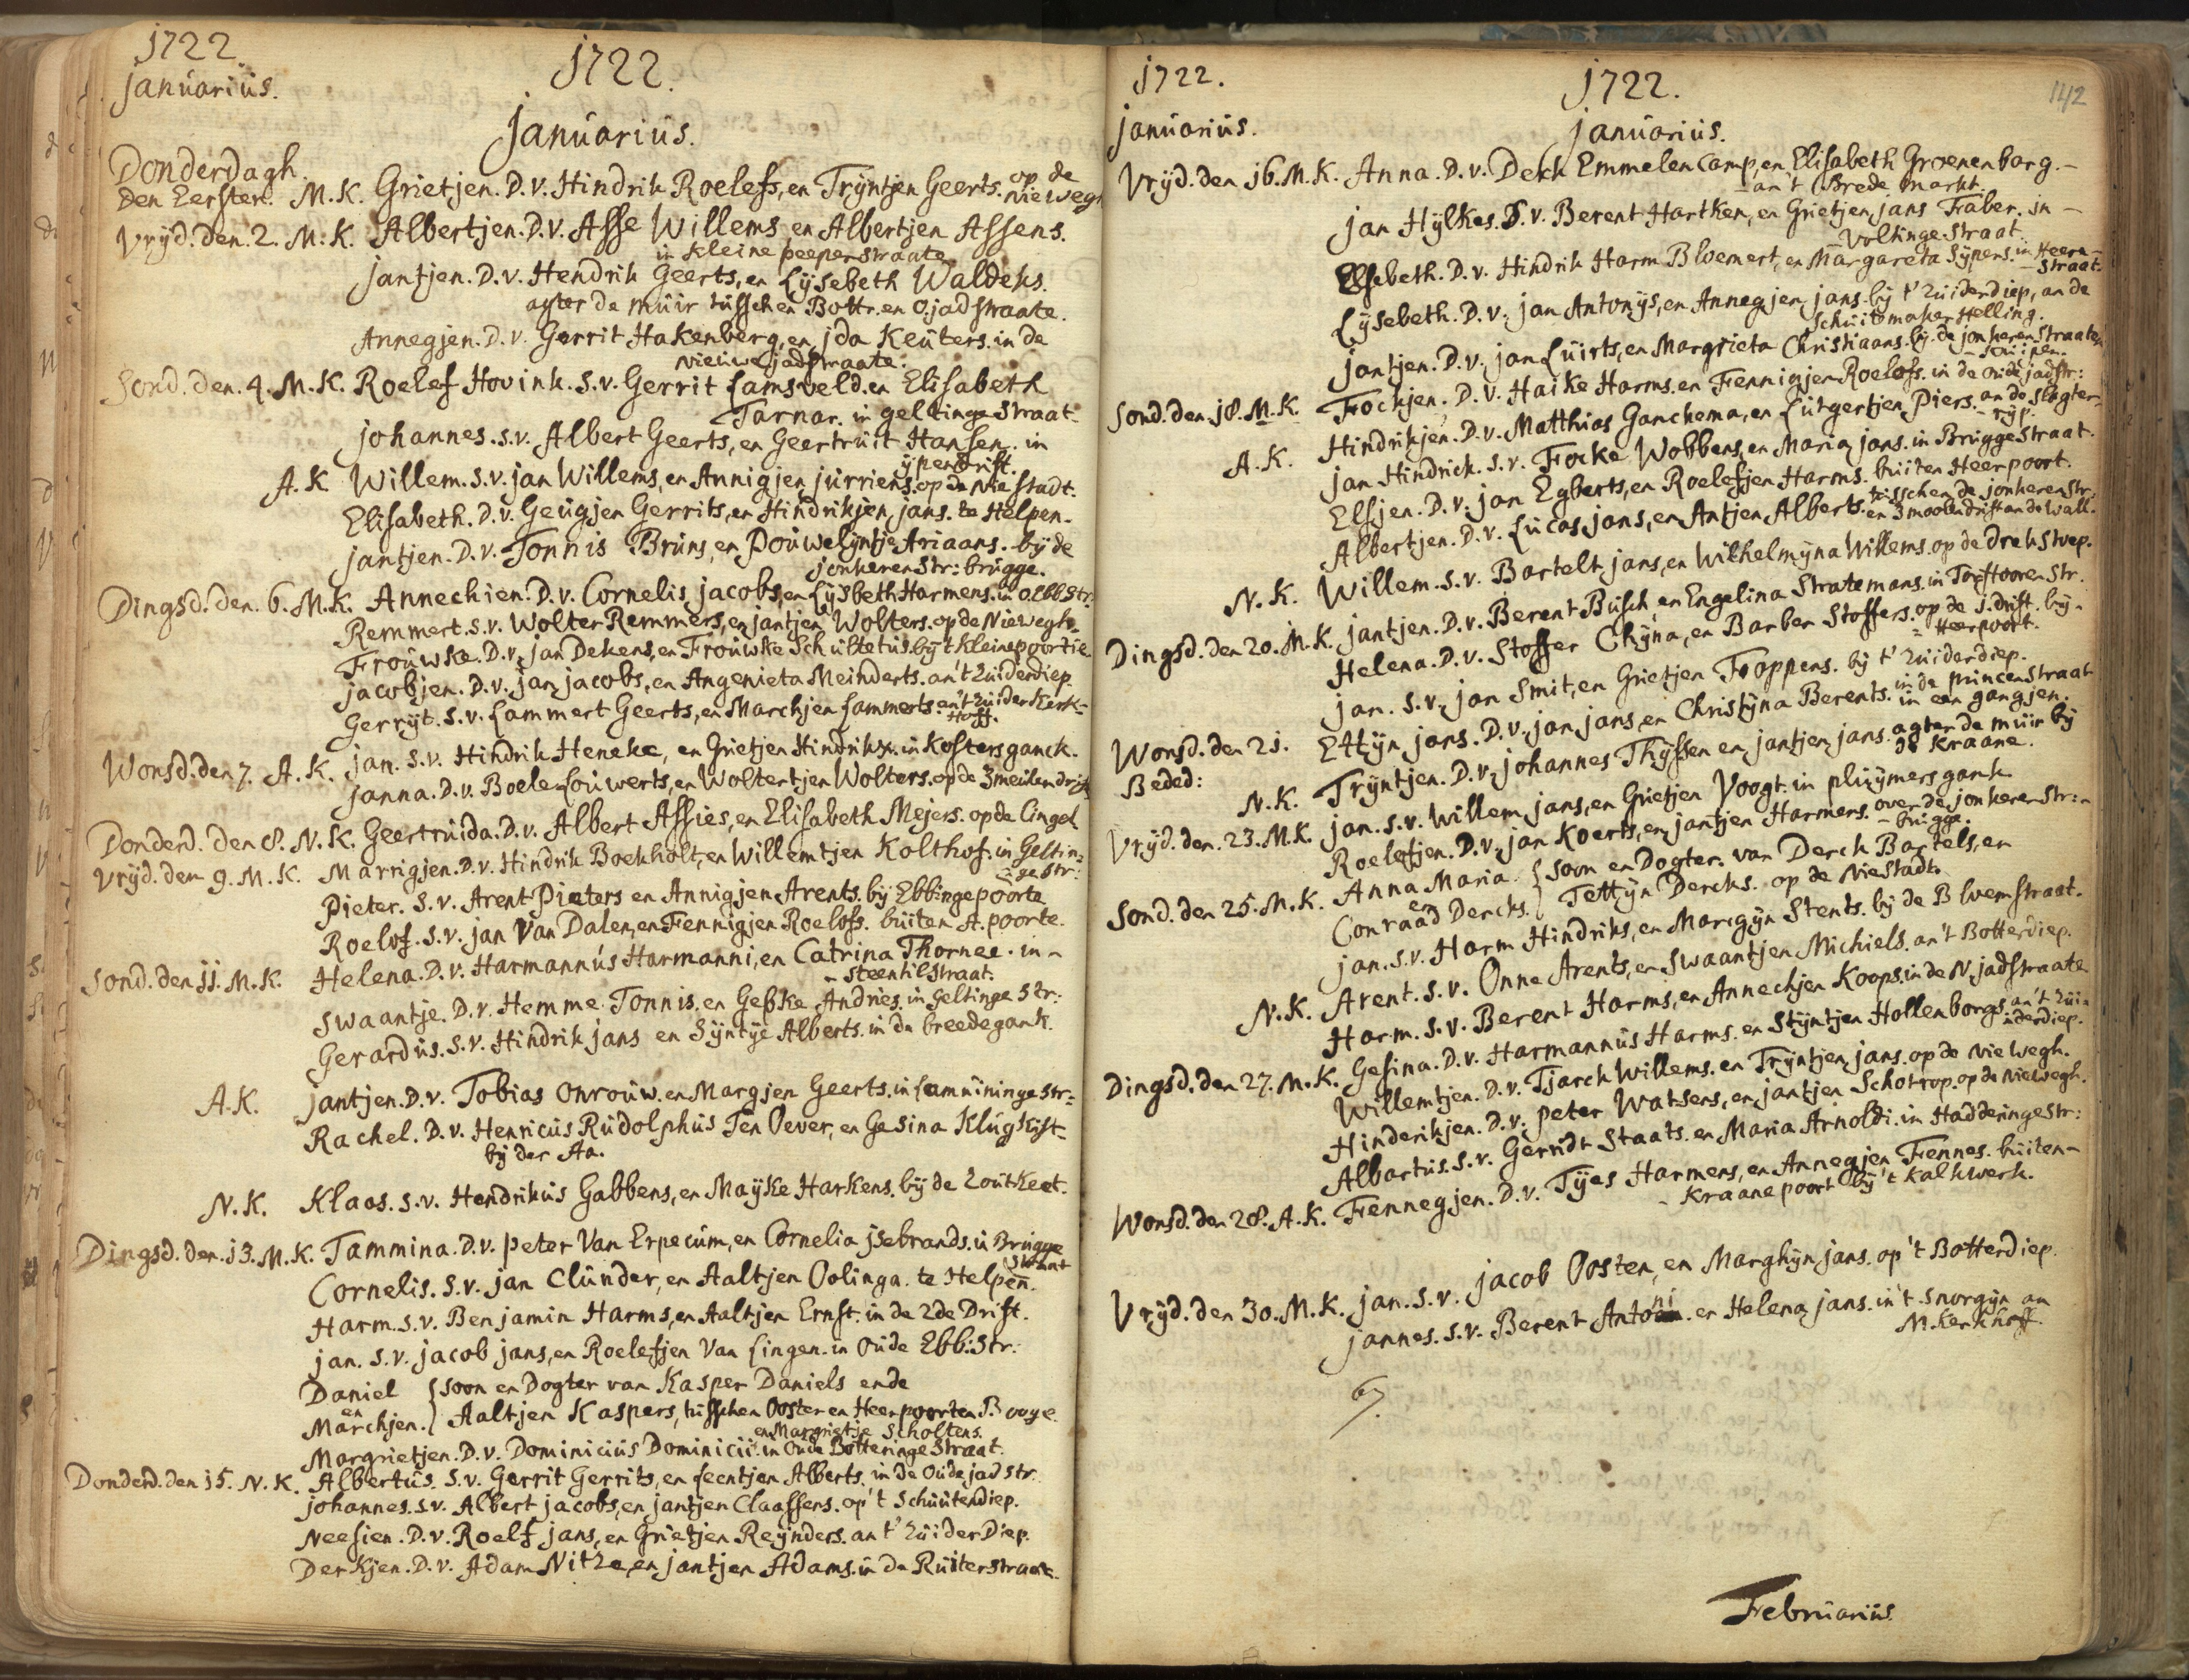 1722.
januarius.
1722.
januarius.
Donderdagh.
Den Eersten. M.K. Grietjen. D.v. Hindrik Roelefs, en Trÿntjen Geerts. op de
Niewegh
Vrÿd. den. 2. M.K. Albertjen. D.v. Asse Willems en Albertjen Assens.
in kleine peeperstraate
jantjen. D.v. Hendrik Geerts, en Lÿsebeth Waldeks.
agter de muir tusschen Bottr. en O. jadstraate.
Annegjen. D.v. Gerrit Hakenberg, en jda Keuters. in de
nieuwe jadstraate.
Sond. den. 4. M.K. Roelef Hovink. s.v. Gerrit Lamsveld. en Elisabeth
Tarnar. in geltinge straat.
johannes. s.v. Albert Geerts, en Geertruit Hansen. in
ÿpendrift.
A.K. Willem. s.v. jan Willems, en Annigjen jurriens. op de Nie stadt.
Elisabeth. D.v. Geugjen Gerrits, en Hindrikjen jans. te Helpen.
jantjen. D.v. Tonnis Bruns, en Douwelÿntje Ariaans. bÿ de
jonkeren Str: brugge.
Dingsd. den. 6. M.K. Annechien. D.v. Cornelis jacobs, en Lÿsbeth Harmens. in O Ebb Str.
Remmert. s.v. Wolter Remmers, en jantjen Wolters. op de Niewegh.
Frouwke. D.v. jan Dekens, en Frouwke Schultetus. bÿ t kleine poortie.
jacobjen. D.v. jan jacobs, en Angenieta Meinderts. an't Zuiderdiep.
Gerrÿt. s.v. Lammert Geerts, en Marchjen Lammerts. an't Zuiderkerk-
Hoff.
Wonsd. den 7. A.K. jan. s.v. Hindrik Heneke, en Grietjen Hindriks. in Kosters ganck.
janna. D.v. Boele Louwerts, en Woltertjen Wolters. op de 3 meulendrift
Donderd. den 8. N.K. Geertruida. D.v. Albert Assies, en Elisabeth Mejers. op de Cingel
Vrÿd. den 9. M.K. Marrigjen. D.v. Hindrik Boekholt, en Willemtjen Kolthof. in Geltin-
ge str:
Pieter. s.v. Arent Pieters en Annigjen Arents. bÿ Ebbingepoorte
Roelof. s.v. jan Van Dalen, en Fennigjen Roelofs. buiten A. poorte.
Sond. den 11. M.K. Helena. D.v. Harmannus Harmanni, en Catrina Thornee. in -
- steentilstraat.
Swaantje. D.v. Hemme. Tonnis. en Geske Andries. in geltinge str:
Gerardus. s.v. Hindrik jans en Sÿntÿe Alberts. in de breedegank.
A.K. jantjen. D.v. Tobias Onrouw. en Margjen Geerts. in Lamnuninge str:
Rachel. D.v. Henricus Rudolphus Ten Oever, en Gesina Klugkist-
bÿ der Aa.
N.K. Klaas. s.v. Hendrikus Gabbens, en Maÿke Harkens. bÿ de Zoutkeet.
Dingsd. den. 13. M.K. Tammina. D.v. peter Van Erpecum, en Cornelia jsebrands. in Brugge
straat
Cornelis. s.v. jan Clunder, en Aaltjen Oolinga. te Helpen.
Harm. s.v. Benjamin Harms, en Aaltjen Ernst. in de 2de Drift.
jan. s.v. jacob jans, en Roelefjen Van Lingen. in Oude Ebb: Str:
Daniel { soon en Dogter van Kasper Daniels ende
en
Marchjen. } Aaltjen Kaspers, tusschen Ooster en Heerpoorten B ooge.
en Margrietje Scholtens.
Margrietjen. D.v. Dominicus Dominicii. in Oude Botteringe straat.
Donderd. den 15. N.K. Albertus. s.v. Gerrit Gerrits, en Leentjen Alberts. in de Oude jad str.
johannes. s.v. Albert jacobs, en jantjen Claassens. op 't Schuitendiep.
Neesien. D.v. Roelf jans, en Grietjen Reÿnders. an t' Zuider Diep.
Derkjen. D.v. Adam Nitze, en jantjen Adams. in de Ruiterstraate.
1722.
januarius.
1722.
januarius.
142
Vrÿd. den 16. M.K. Anna. D.v. Derk Emmelencamp, en Elisabeth Groenenborg. -
- an 't Brede markt.
jan Hÿlkes. S.v. Berent Hartken, en Grietjen jans Faber. in -
- Volkinge straat.
Elsebeth. D.v. Hindrik Harm Bloemert, en Margareta Sÿpens. in Heere-
- straat.
Lÿsebeth. D.v. jan Antonÿs, en Annegjen jans. bÿ t' Zuiderdiep, an de
Schuitemaker Helling.
jantjen. D.v. jan Luirts, en Margrieta Christiaans. bÿ de jonkeren straaten
Sond. den 18. M.K. Fockjen. D.v. Haike Harms. en Fennigjen Roelofs. in de Oude jadstr:
Hindrikjen. D.v. Matthias Ganckema, en Lutgertjen Piers. an de slagter-
- rÿp.
A.K. jan Hindrick. s.v. Focke Wobbens, en Maria jans. in Brugge straat.
Elsjen. D.v. jan Egberts, en Roelefjen Harms. buiten Heerpoort.
Albertjen. D.v. Lucas jans, en Antjen Alberts. tusschen de jonkeren str.
en 3 moolendrift an de wall.
N.K. Willem. s.v. Bartelt jans, en Wilhelmÿna Willems. op de Drekstoep.
Dingsd. den 20. M.K. jantjen. D.v. Berent Busch, en Engelina Stratemans. in Torfhooren Str.
Helena. D.v. Stoffer Chÿna, en Barber Stoffers. op de 1. drift. bÿ -
- Heerpoort.
jan. s.v. jan Smit, en Grietjen Foppens. bÿ t' Zuiderdiep.
Wonsd. den 21. Ettÿn jans. D.v. jan jans, en Christÿna Berents. in de Princenstraat
in een gangjen.
Beded: N.K. Trÿntjen. D.v. johannes Thÿssen en jantjen jans. agter de muir bÿ
de Kraane.
Vrÿd. den. 23. M.K. jan. s.v. Willem jans, en Grietjen Voogt. in pluÿmers gank
Roelefjen. D.v. jan Koerts, en jantjen Harmens. over de jonkeren Str: -
- brugge.
Sond. den 25. M.K. Anna Maria { soon en Dogter. van Derck Bartels, en
en
Conraad Dercks. } Tettÿn Dercks. op de Niestadt.
jan. s.v. Harm Hindriks, en Margÿn Stents. bÿ de Bloemstraat.
N.K. Arent. s.v. Onne Arents, en Swaantjen Michiels. an't Botterdiep.
Harm. s.v. Berent Harms, en Annechjen Koops. in de N. jadstraate
Dingsd. den 27. M.K. Gesina. D.v. Harmannus Harms. en Stÿntjen Hollenborgs. an't Zui-
derdiep.
Willemtjen. D.v. Tjarck Willems. en Trÿntjen jans. op de Nie wegh.
Hinderikjen. D.v. peter Watsens, en jantjen Schotrop. op de Niewegh.
Albartus. s.v. Gerridt Staats. en Maria Arnoldi. in Hadderingestr:
Wonsd. den 28. A.K. Fennegjen. D.v. Tÿes Harmens, en Annegjen Fennes. buiten -
- Kraane poort bÿ 't Kalkwerk.
Vrÿd. den 30. M.K. jan. s.v. jacob Oosten, en Marghÿn jans. op 't Botterdiep.
jannes. s.v. Berent Antoni. en Helena jans. in 't Snorgÿn an
M. Kerkhoff.
67.
Februarius.